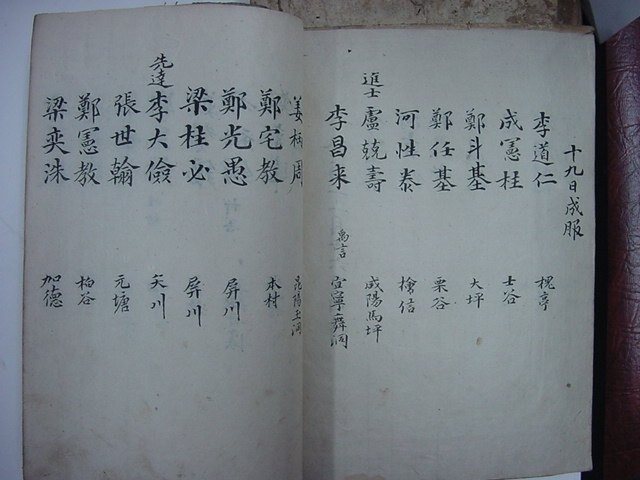 十九日成服
李道仁 槐亭
成憲柱 士谷
鄭斗基 大坪
鄭任基 栗谷
河性泰 檜信
進士 盧兢壽 咸陽馬坪
李昌来 宜寧舞洞
姜 周 昆陽玉洞
鄭宅教 本村
鄭光愚 屏川
梁柱必 屏川
先達 李大儉 矢川
張世翰 元塘
鄭憲教 柏谷
梁奕洙 加德